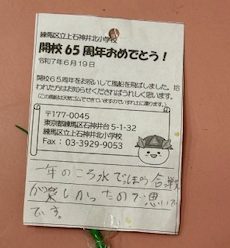 練馬区立上石神井北小学校
開校65周年おめでとう!
令和7年6月19日
開校65周年をお祝いして風船を飛ばしました。拾
われた方はお知らせくださればうれしく思います。
〒177-0045
東京都練馬区石神井台5-1-32
練馬区立上石神井北小学校
Fax:03-3929-9053
一年のころ水でほの合
が楽しかったので思い
です。